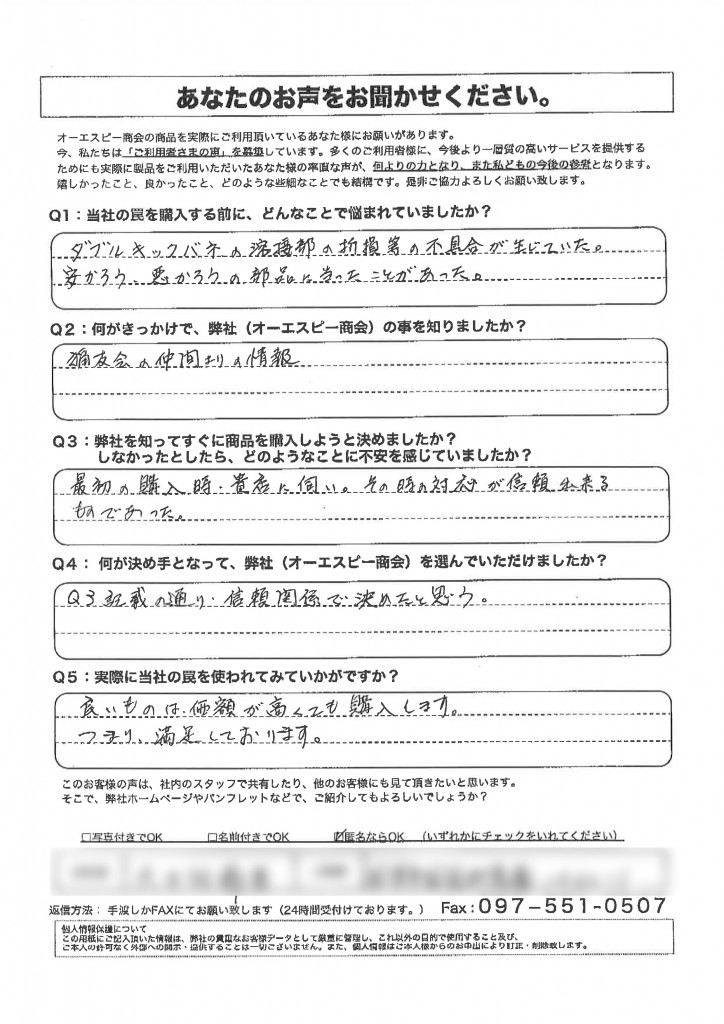 あなたのお声をお聞かせください。
オーエスピー商会の商品を実際にご利用頂いているあなた様にお願いがあります。
今、私たちは「ご利用者さまの声」を募集しています。多くのご利用者様に、今後より一層質の高いサービスを提供する
ためにも実際に製品をご利用いただいたあなた様の率直な声が、何よりの力となり、また私どもの今後の参考となります。
嬉しかったこと、良かったこと、どのような些細なことでも結構です。是非ご協力よろしくお願い致します。
Q1：当社の罠を購入する前に、どんなことで悩まれていましたか？
ダブルキックバネの溶接部の折損等の不具合が生じていた。
安かろう、悪かろうの部品に当ったことがあった。
Q2：何がきっかけで、弊社（オーエスピー商会）の事を知りましたか？
猟友会の仲間よりの情報
Q3：弊社を知ってすぐに商品を購入しようと決めましたか？
しなかったとしたら、どのようなことに不安を感じていましたか？
最初の購入時・貴店に伺い。その時の対応が信頼出来る
ものであった。
Q4： 何が決め手となって、弊社（オーエスピー商会）を選んでいただけましたか？
Q3記載の通り・信頼関係で決めたと思う。
Q5：実際に当社の罠を使われてみていかがですか？
良いものは価額が高くても購入します。
つまり、満足しております。
このお客様の声は、社内のスタッフで共有したり、他のお客様にも見て頂きたいと思います。
そこで、弊社ホームページやパンフレットなどで、ご紹介してもよろしいでしょうか？
□写真付きでOK □名前付きでOK ☑匿名ならOK （いずれかにチェックをいれてください）
返信方法： 手渡しかFAXにてお願い致します（24時間受付ております。） Fax：097−551−0507
個人情報保護について
この用紙にご記入頂いた情報は、弊社の貴重なお客様データとして厳重に管理し、これ以外の目的で使用すること及び、
ご本人の許可なく外部への開示・提供することは一切ございません。また、個人情報はご本人様からのお申出により訂正・削除致します。